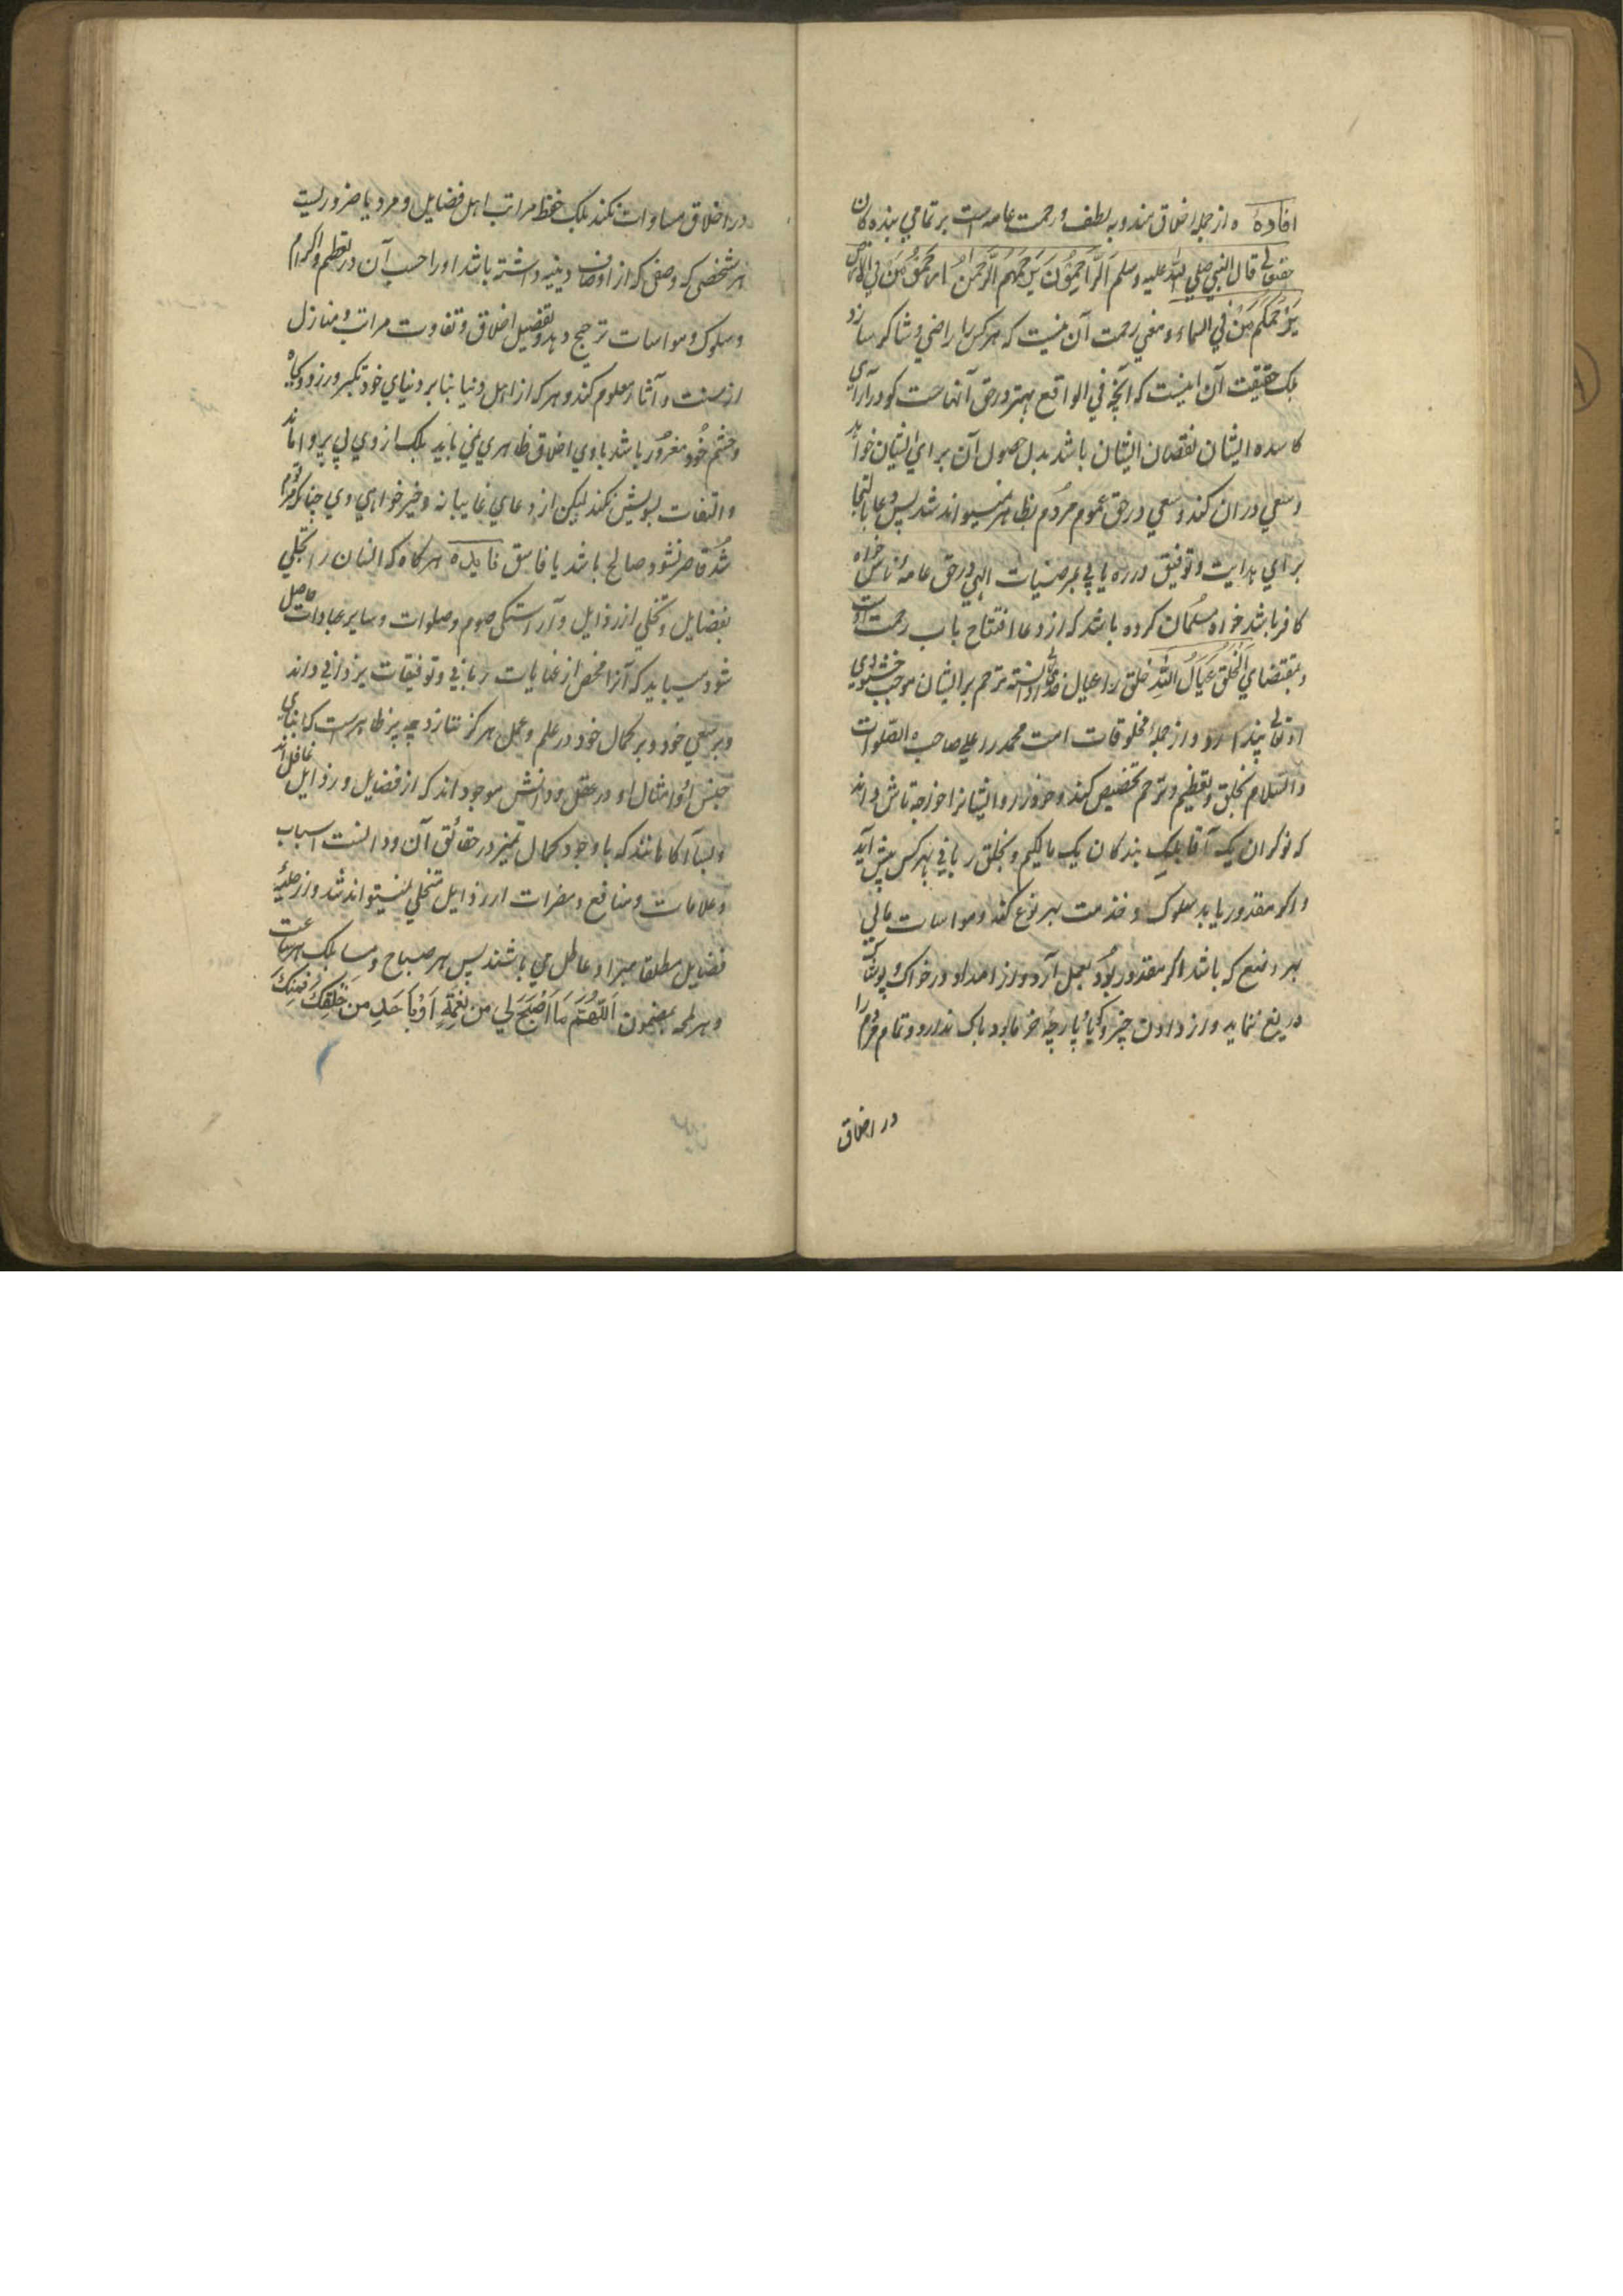 افادهٔ ه از جمله اخلاق مندوبه لطف و رحمت عامه است بر تمامي بنده کان
حقتعالی قال النبي صلي الله عليه وسلم اَلرَّاحِمُونَ يَرْحَمُهُمُ الرَّحْمٰنُ ارحموا مَنْ في الارض
يَرْحَمُكُمْ مَنْ في السماء و معني رحمت آن نيست که هر کس را راضي و شاکر سازد
بلک حقيقت آن اينست که آنچه في الواقع بهتر در حق آنهاست کو در آراي
کاسده ايشان نقصان ايشان باشد بدل حصول آن براي ايشان خواهد
و سعي دران کند و سعي در حق عموم مردم بظاهر نميتواند شد پس دعا بالتجا
براي هدايت و توفيق در ره يابي بمرضيات الهي در حق عامه ناس خواه
کافر باشد خواه مسلمان کرده باشد که از دعا افتتاح باب رحمت است
و بمقتضاي اَلْخَلْقُ عِيَالُ اللهِ خلق را عيال خدا دانسته ترحم بر ايشان موجب خشنودي
او تعالی پندارد و از جملهٔ مخلوقات امت محمد را علي صاحبه الصلوات
والسلام بخلق و تعظيم و ترحم تخصيص کند و خود را و ايشانرا خواجه تاش داند
که نوکران يک آقا بلک بندکان يک مالکيم و بخلق رباني بهر کس پيش آيد
و اکر مقدور يابد سلوک و خدمت بهر نوع کند و مواسات مالي
بهر وضع که باشد اکر مقدور بود بعمل آرد و از امداد در خوراک و پوشاک
دريغ ننمايد و از دادن چيزکي يا پارچه خرما بود باک ندارد و تمام مردم را
در اخلاق
در اخلاق مساوات نکند بلک حفظ مراتب اهل فضايل و مردیا ضروريست
هر شخصي که وصفي که از اوصاف دينيه داشته باشد او را حسب آن در تعظيم و اکرام
و سلوک و مواسات ترجيح دهد و تفصيل اخلاق و تفاوت مراتب و منازل
از سنت و آثار معلوم کند و هر که از اهل دنيا بنابر دنياي خود تکبر ورزد و بجاه
و حشم خود مغرور باشد باوي اخلاق ظاهري نمي بايد بلک از وي بي پروا ماند
و التفات بسويش نکند ليکن از دعاي غايبانه و خيرخواهي وي چنانکه مرقوم
شد قاصر نشود صالح باشد يا فاسق فايده هر کاه که انسان را تحلي
بفضايل و تخلي از رذايل و آراستکي صوم و صلوات و ساير عبادات حاصل
شود ميبايد که آنرا محض از عنايات رباني و توفيقات يزداني داند
و بر سعي خود و بر کمال خود در علم و عمل هرکز ننازد چه پر ظاهرست که ابناي
جنس او و امثال او در عقل و دانش موجود اند که از فضايل و رذايل غافل اند
و بسا آکاهانند که با وجود کمال تميز در حقائق آن و دانست اسباب
و علامات و منافع و مضرات از رذايل متخلي نميتواند شد و از حليهٔ
فضايل مطلقا مبرا و عاطل مي باشند پس هر صباح و مسا بلک هر ساعت
و هر لمحه بمضمون اَللّٰهُمَّ مَا اَصْبَحَ لي مِنْ نِعْمَةٍ اَوْ بِاَحَدٍ مِنْ خَلْقِكَ فَمِنْكَ